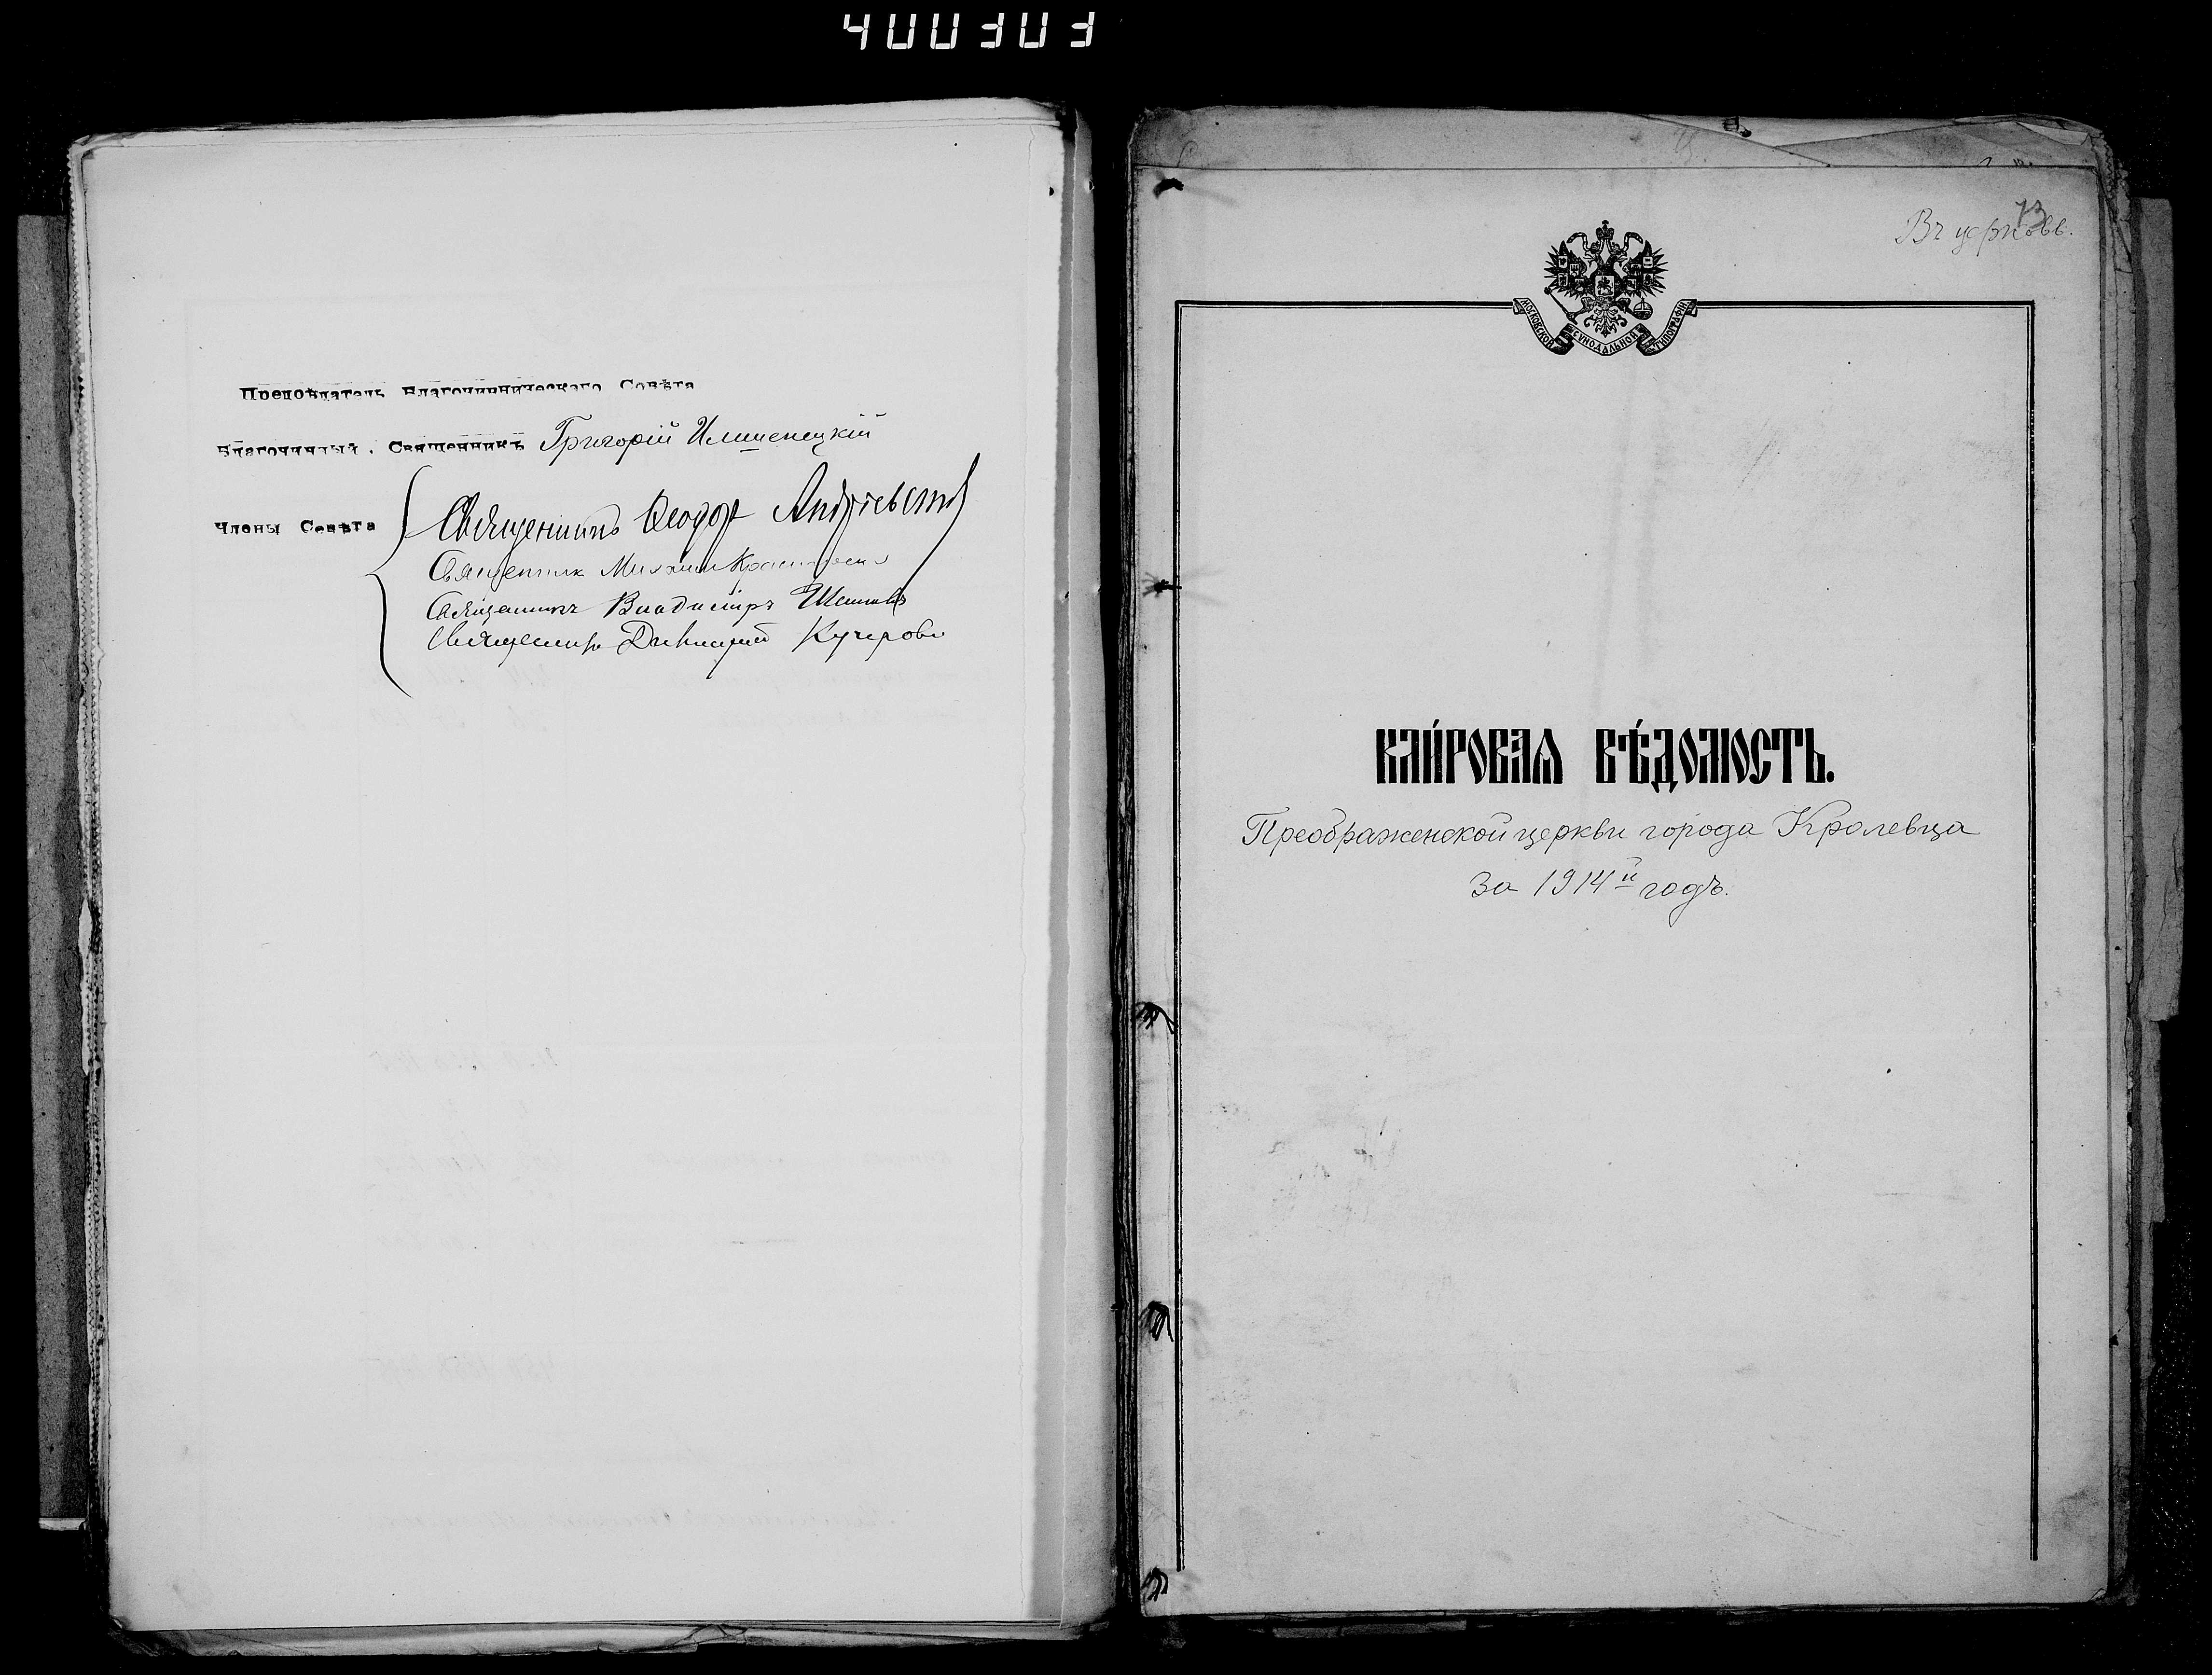 400303
Предсѣдатель Благочинническаго Совѣта
Благочинный, Священникъ Григорій
Члены Совѣта
Священникъ Ѳеодоръ Андріевскій
Священник Михаил
Священникъ Владиміръ
Священникъ Димитрій Кучеровъ
73
Въ церковь.
МОСКОВСКОЙ СУНОДАЛЬНОЙ ТИПОГРАФІИ
КЛИ́РОВАѦ ВѢ́ДОМОСТЬ.
Преображенской церкви города Кролевца
за 1914й годъ.